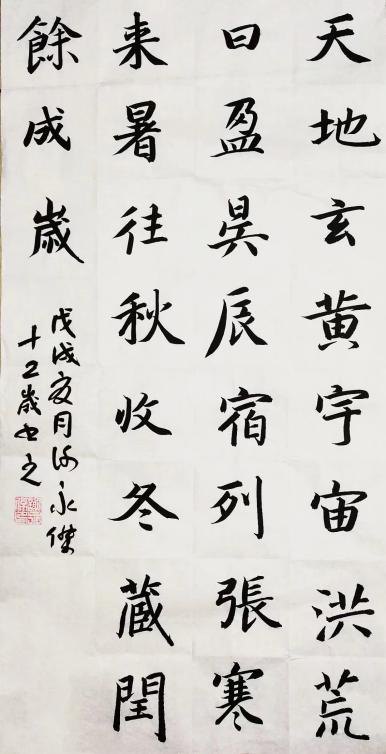 天地玄黄宇宙洪荒
日盈昃辰宿列張寒
来暑往秋收冬藏閏
餘成歲
戊戌夏月永傑
十二歲書之